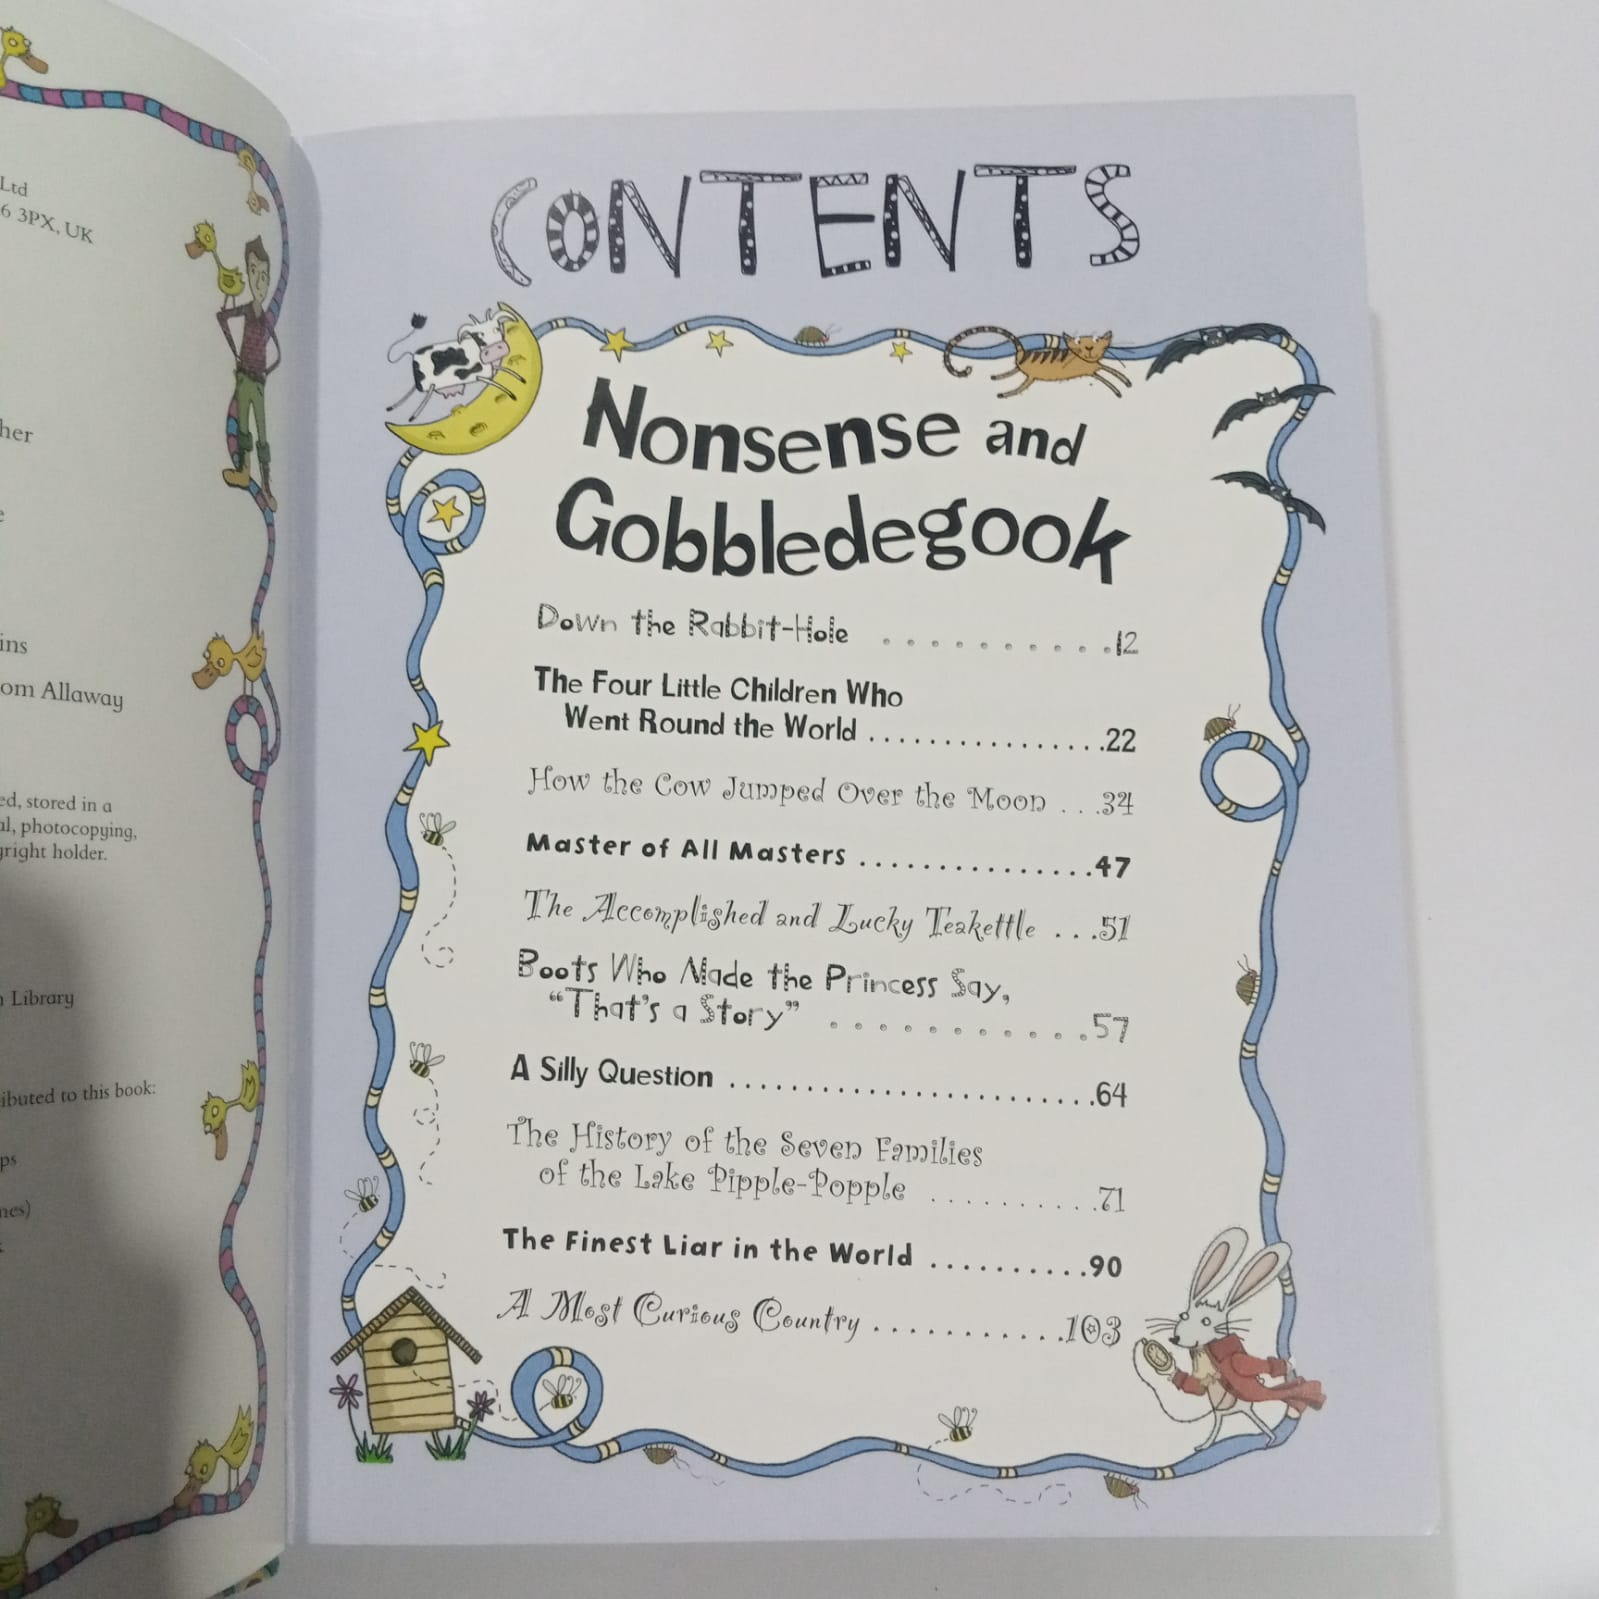 Ltd
6 3PX, UK
her
e
ins
om Allaway
ed, stored in a
al, photocopying,
yright holder.
n Library
ibuted to this book:
ps
mes)
CONTENTS
Nonsense and
Gobbledegook
Down the Rabbit-Hole . . . . . . . . . .12
The Four Little Children Who
Went Round the World . . . . . . . . . . . . . . . .22
How the Cow Jumped Over the Moon . . .34
Master of All Masters . . . . . . . . . . . . . . .47
The Accomplished and Lucky Teakettle . . .51
Boots Who Made the Princess Say,
“That’s a Story” . . . . . . . . . . .57
A Silly Question . . . . . . . . . . . . . . . . . . . . . . . .64
The History of the Seven Families
of the Lake Pipple-Popple . . . . . . . . . .71
The Finest Liar in the World . . . . . . . . . .90
A Most Curious Country . . . . . . . . . . . .103